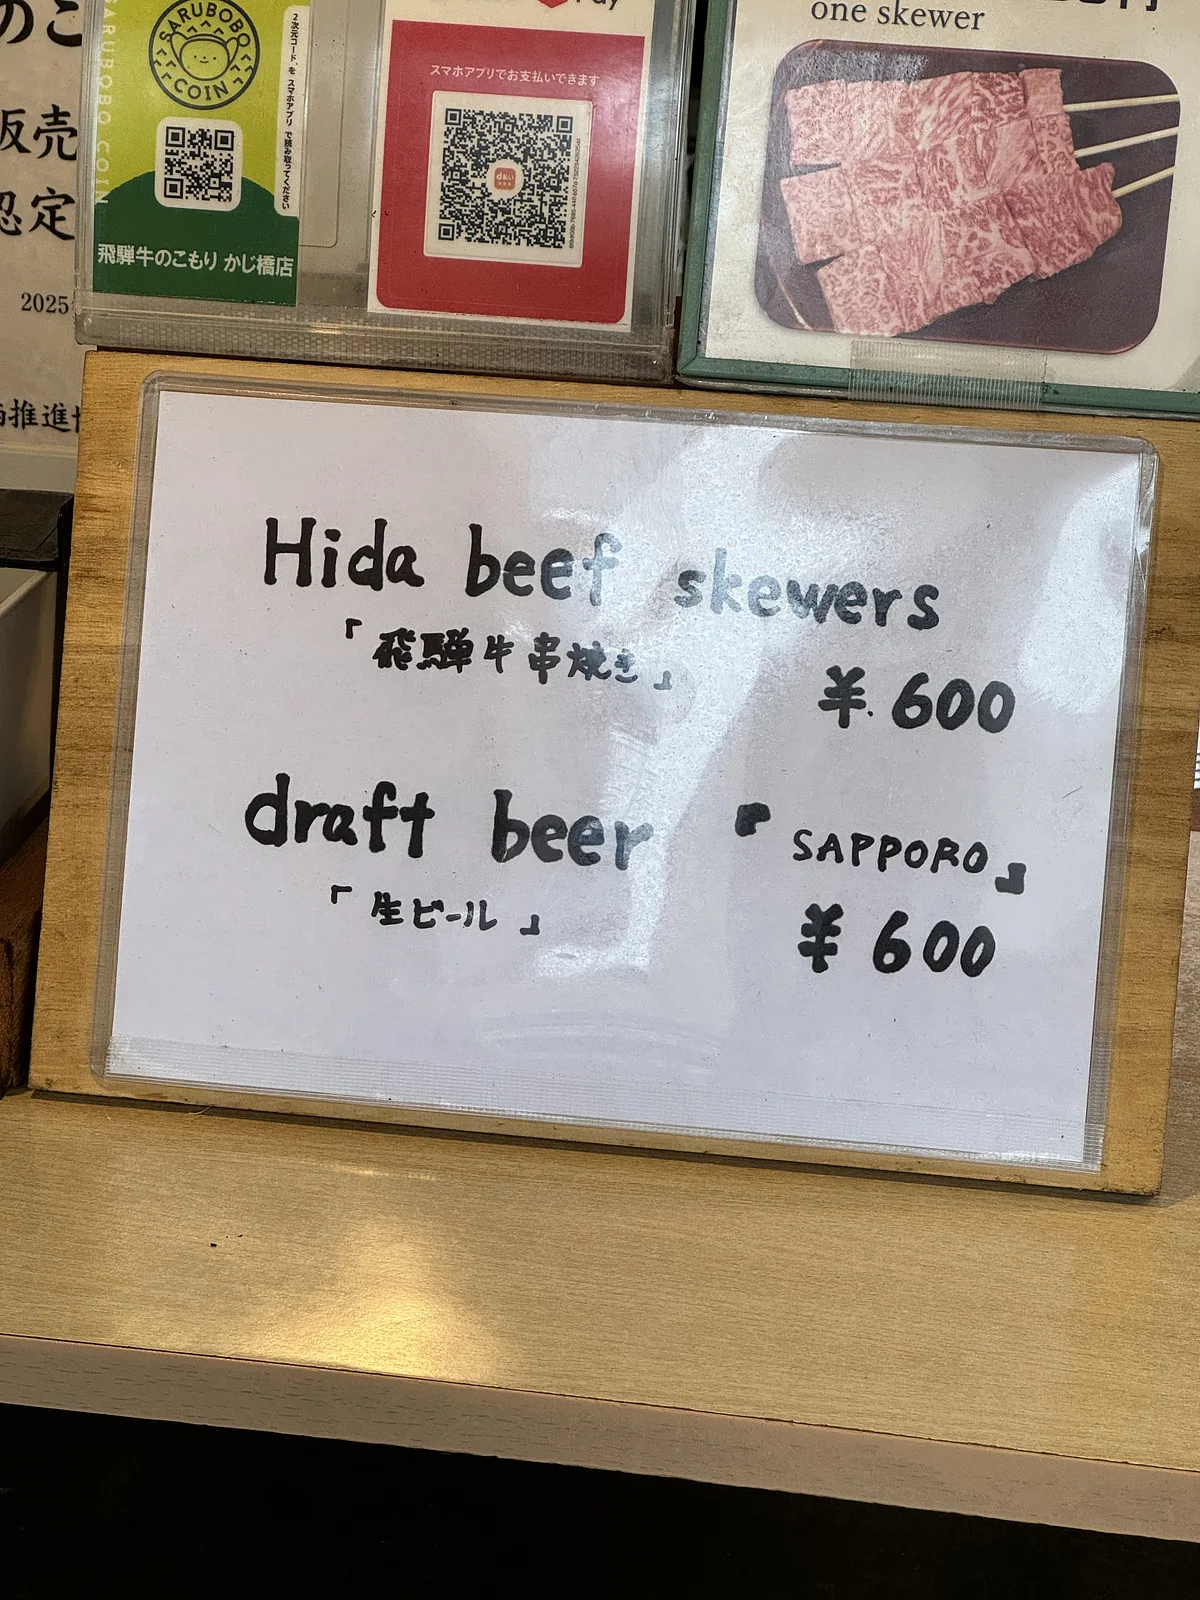 のこ
販売
認定
2025
推進
SARUBOBO COIN
SARUBOBO
COIN
2次元コード を スマホアプリ で読み取ってください
飛騨牛のこもり かじ橋店
Pay
スマホアプリでお支払いできます
d払い
one skewer
Hida beef skewers
「飛騨牛串焼き」
¥.600
draft beer 『SAPPORO』
「生ビール」
¥600